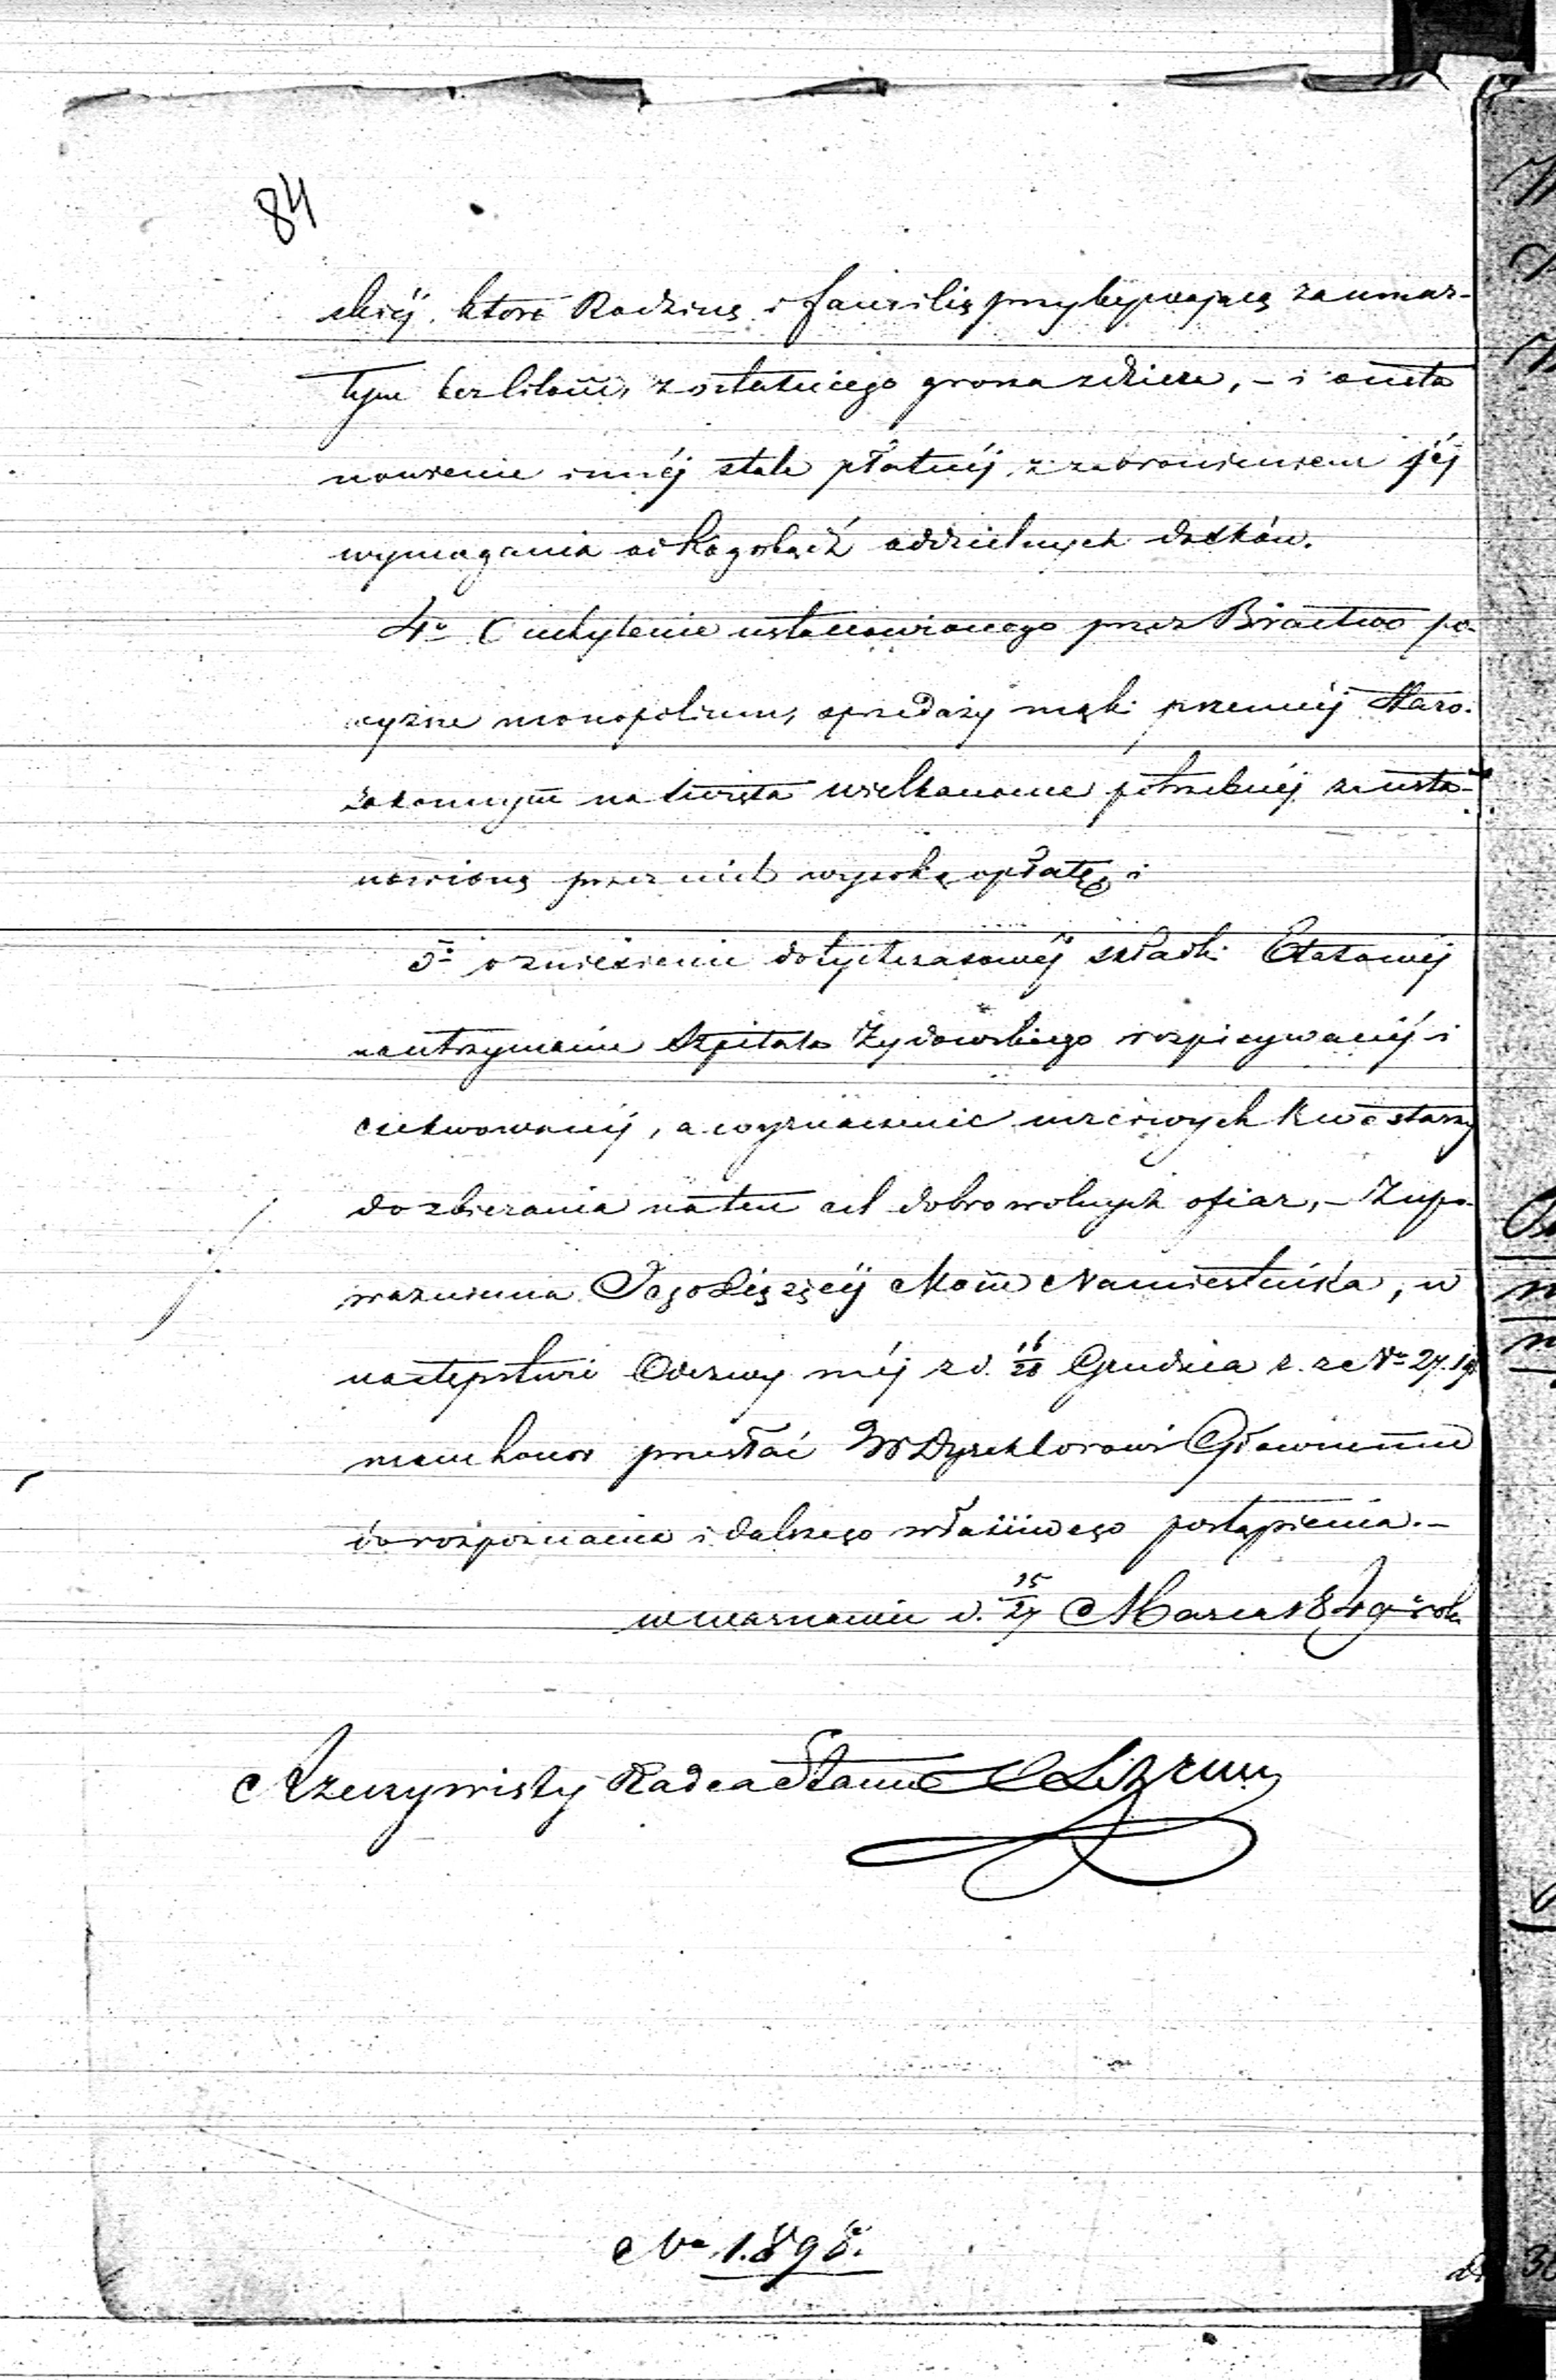 84
skiéj, które Rodzinę i familię przybywającą za umar-
łym bez litości, z ostatniego grosza zdziera, – i austa
nowienie innéj stale płatnéj, z zabronieniem jéj
wymagania od kogobądź oddzielnych datków.
4o O uchylenie ustanowionego przez Bractwo po-
wyższe monopolium, sprzedaży mąki pszennéj Staro-
zakonnym na święta wielkanocne potrzebnéj za usta-
nowioną przez nich wysoką opłatę, i
5o o zniesienie dotychczasowéj składki Etatowéj
na utrzymanie Szpitala Żydowskiego rozpisywanéj i
exekwowanéj, a wyznaczenie uczciwych Kwestarzy
do zbierania na ten cel dobrowolnych ofiar, – Z upo-
ważnienia Jego Xiążęcéj Mości Namiestnika, w
następstwie Odezwy méj z d. 16/28 Grudnia r. z. No 27.
mam honor przesłać JW Dyrektorowi Głównemu
do rozpoznania i dalszego właściwego postąpienia. –
w Warszawie d. 15/27 Marca 1849 roku
Rzeczywisty Radca Stanu
No 1.898.